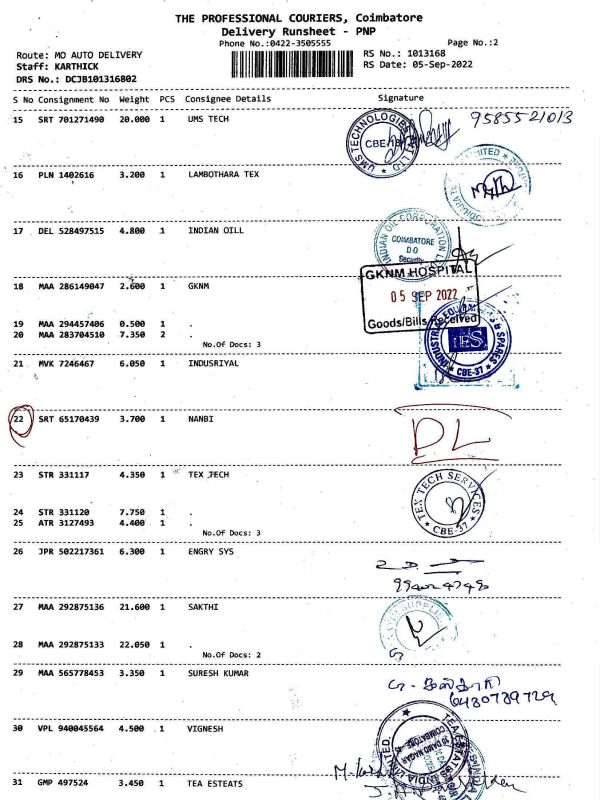 THE PROFESSIONAL COURIERS, Coimbatore
Delivery Runsheet - PNP
Phone No.:0422-3505555
Page No.:2
Route: MO AUTO DELIVERY
RS No.: 1013168
Staff: KARTHICK
RS Date: 05-Sep-2022
DRS No.: DCJB101316802
S No Consignment No Weight PCS Consignee Details Signature
15 SRT 701271490 20.000 1 UMS TECH
UMS TECHNOLOGIES PVT LTD
CBE
9585521013
16 PLN 1402616 3.200 1 LAMBOTHARA TEX
17 DEL 528497515 4.800 1 INDIAN OILL
INDIAN OIL CORPORATION
COIMBATORE
D.O
Security
18 MAA 286149047 2.600 1 GKNM
GKNM HOSPITAL
05 SEP 2022
Goods/Bills Received
19 MAA 294457406 0.500 1 .
20 MAA 283704510 7.350 2 .
No.Of Docs: 3
21 MVK 7246467 6.050 1 INDUSRIYAL
INDUSTRIAL EQUIPMENTS & SPARES
IES
CBE-37
22 SRT 65170439 3.700 1 NANBI
DL
23 STR 331117 4.350 1 TEX TECH
TEX TECH SERVICES
CBE-37
24 STR 331120 7.750 1 .
25 ATR 3127493 4.400 1 .
No.Of Docs: 3
26 JPR 502217361 6.300 1 ENGRY SYS
27 MAA 292875136 21.600 1 SAKTHI
28 MAA 292875133 22.050 1 .
No.Of Docs: 2
29 MAA 565778453 3.350 1 SURESH KUMAR
30 VPL 940045564 4.500 1 VIGNESH
31 GMP 497524 3.450 1 TEA ESTEATS
TEA ESTATES INDIA LIMITED
COIMBATORE